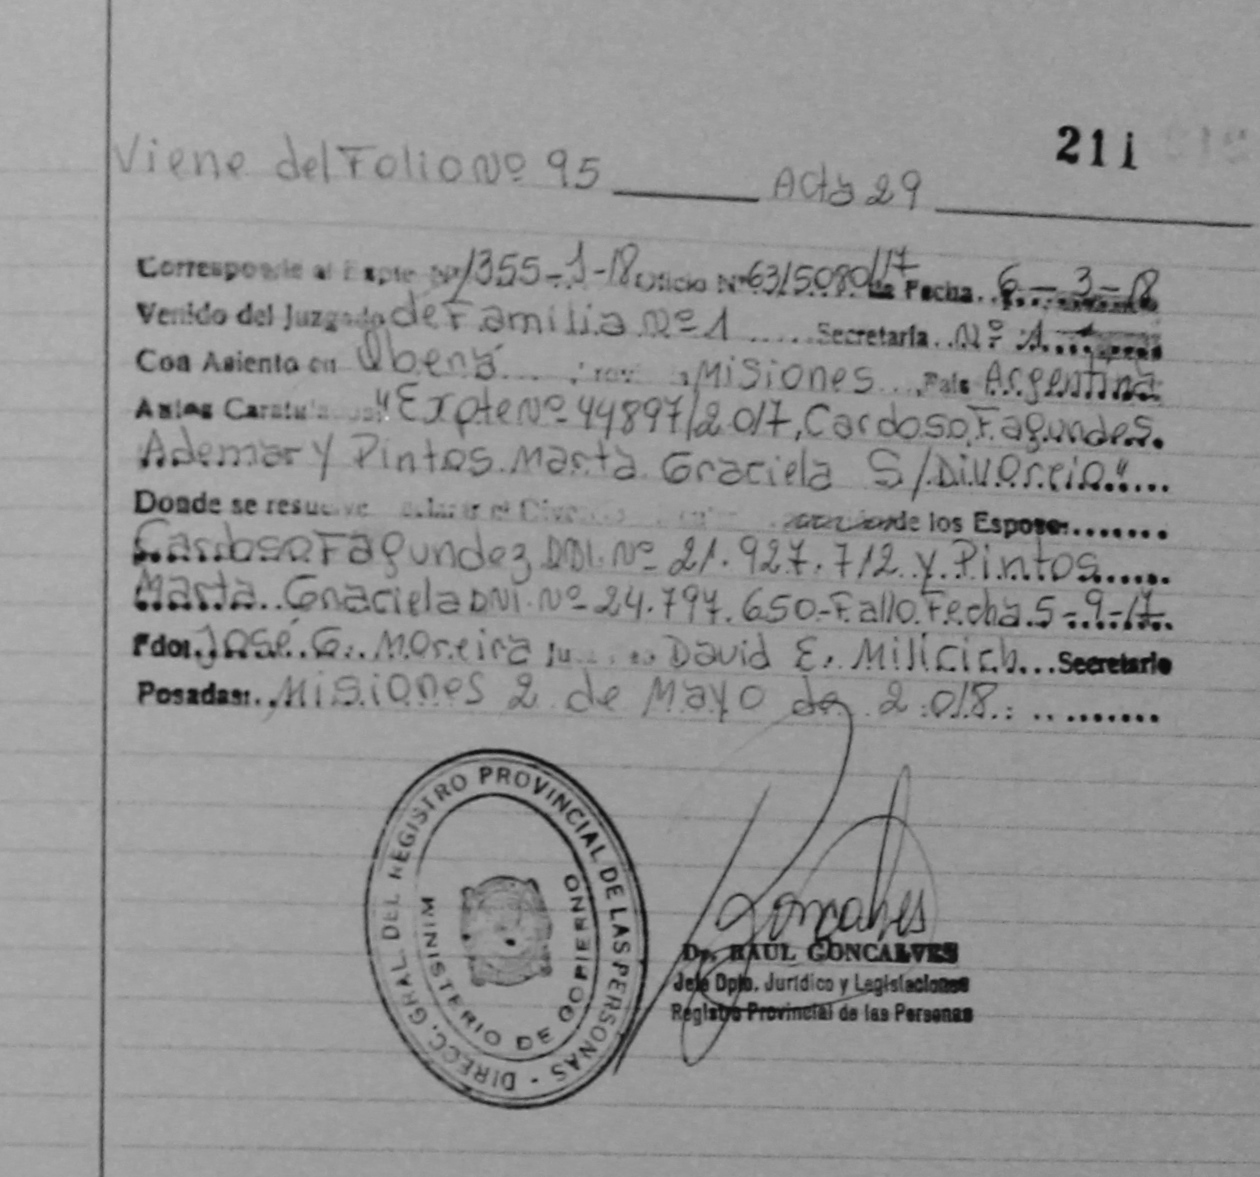 211
Viene del Folio Nº 95 Acta 29
Corresponde al Expte Nº 1355-J-18 Oficio Nº 6315080/17 de Fecha 6 - 3 - 18
Venido del Juzgado de Familia Nº 1 ..... Secretaría .. Nº 1 ....
Con Asiento en Oberá ... Prov Misiones ... País Argentina
Autos Caratulados "Expte Nº 44897/2017, Cardoso Fagundes.
Ademar y Pintos Marta Graciela S/Divorcio"....
Donde se resuelve declarar el Divorcio de los Esposos.......
Cardoso Fagundez DNI. Nº 21.927.712 y Pintos.....
Marta Graciela DNI. Nº 24.797.650-Fallo Fecha 5-9-17.
Fdo: José G. Moreira Juez David E. Milicich...Secretario
Posadas:..Misiones 2 de Mayo de 2.018. .. ........
DIRECC. GRAL. DEL REGISTRO PROVINCIAL DE LAS PERSONAS -
MINISTERIO DE GOBIERNO
Goncalves
Dr. RAUL GONCALVES
Jefe Dpto. Jurídico y Legislaciones
Registro Provincial de las Personas